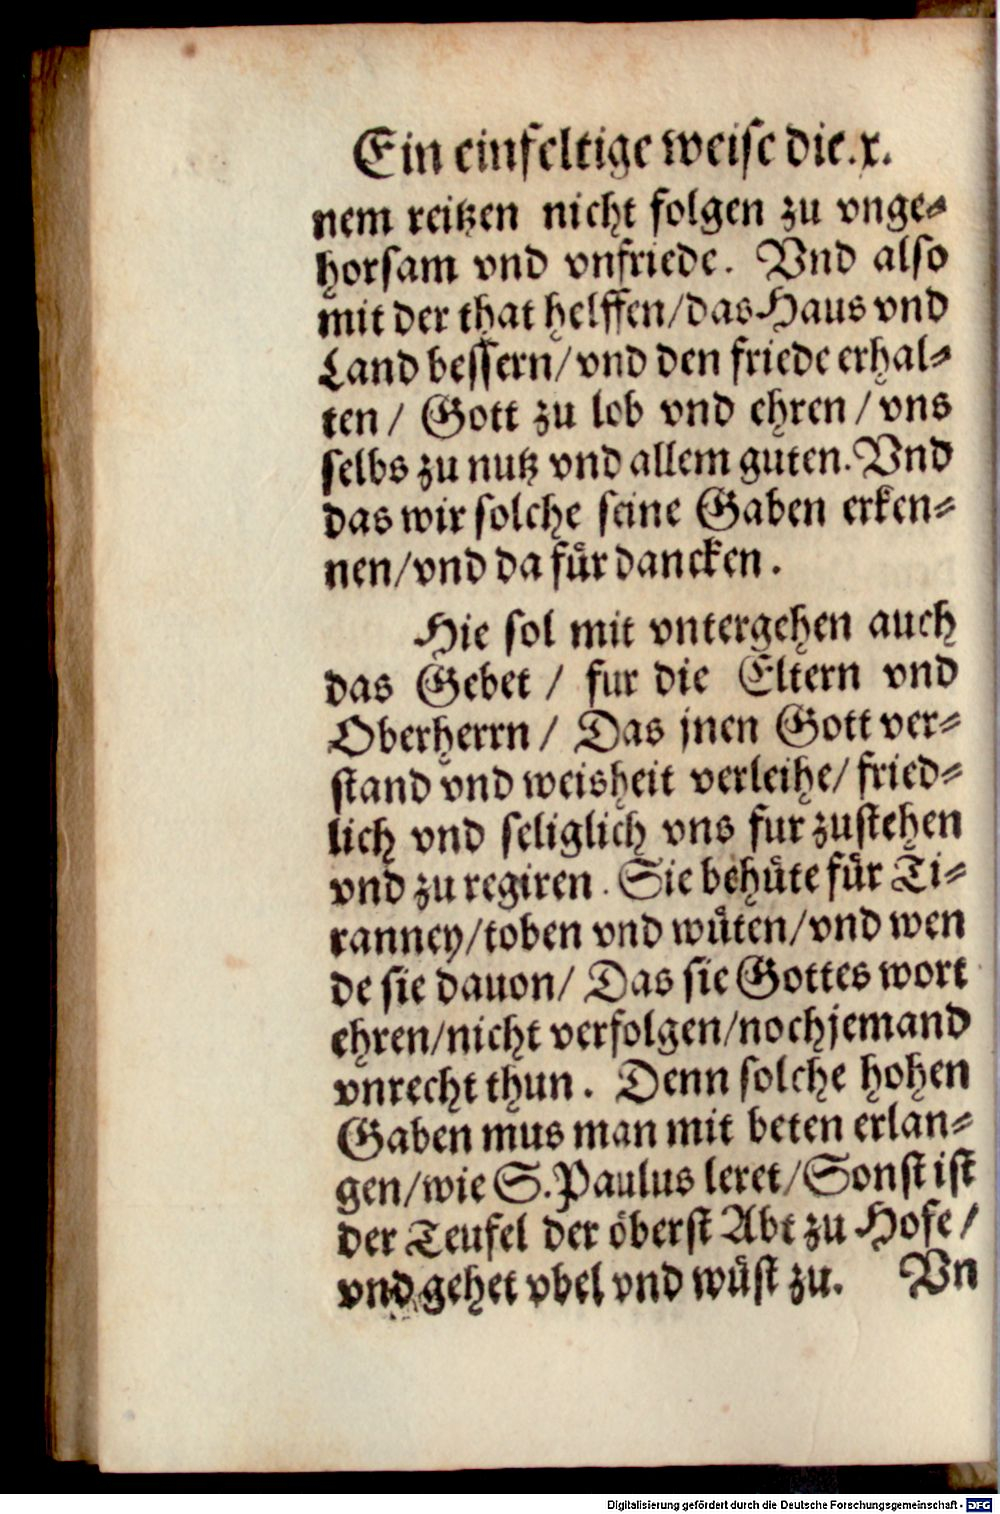 Ein einfeltige weise die.x.
nem reitzen nicht folgen zu vnge⸗
horsam vnd vnfriede. Vnd also
mit der that helffen/das Haus vnd
Land bessern/vnd den friede erhal⸗
ten/ Gott zu lob vnd ehren/vns
selbs zu nutz vnd allem guten. Vnd
das wir solche seine Gaben erken⸗
nen/vnd da fuͤr dancken.
Hie sol mit vntergehen auch
das Gebet / fur die Eltern vnd
Oberherrn/ Das jnen Gott ver⸗
stand vnd weisheit verleihe/ fried⸗
lich vnd seliglich vns fur zustehen
vnd zu regiren. Sie behuͤte fuͤr Ti⸗
ranney/toben vnd wuͤten/vnd wen
de sie dauon/ Das sie Gottes wort
ehren/nicht verfolgen/noch jemand
vnrecht thun. Denn solche hohen
Gaben mus man mit beten erlan⸗
gen/wie S.Paulus leret/Sonst ist
der Teufel der oͤberst Abt zu Hofe/
vnd gehet vbel vnd wuͤst zu. Vn
Digitalisierung gefördert durch die Deutsche Forschungsgemeinschaft - DFG